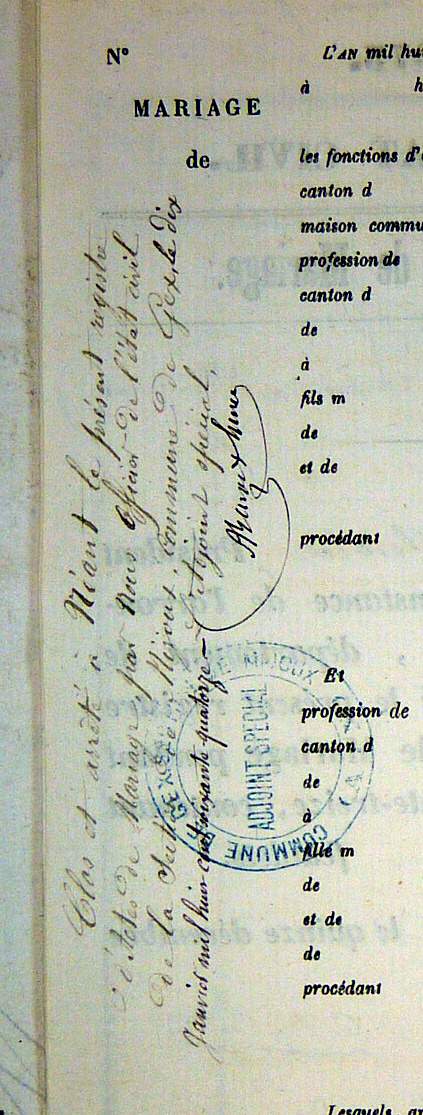 N°
MARIAGE
de
L'AN mil hui
à h
les fonctions d'o
canton d
maison commu
profession de
canton d
de
à
fils m
de
et de
procédant
Et
profession de
canton d
de
à
fille m
de
et de
de
procédant
Lesquels
Clos et arrêté à Néant le présent registre
d'actes de Mariage, par Nous Officier de l'état civil
de la Mijoux, Commune de Gex, le dix
Janvier mil huit cent soixante quatorze
L'adjoint spécial,
COMMUNE DE GEX
MIJOUX
ADJOINT SPÉCIAL